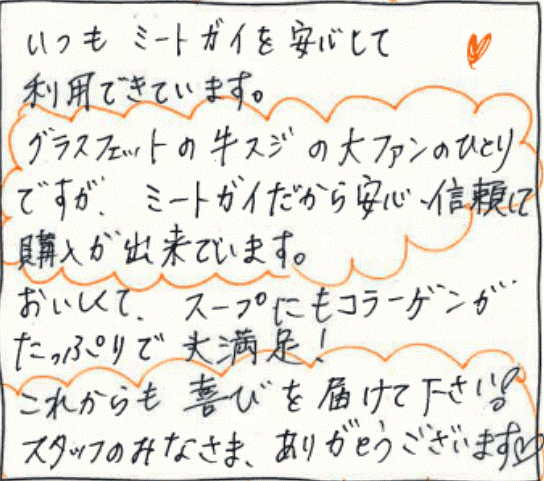 いつも ミートガイを安心して
利用できています。
グラスフェットの牛スジの大ファンのひとり
ですが、ミートガイだから安心・信頼して
購入が出来ています。
おいしくて、スープにもコラーゲンが
たっぷりで大満足!
これからも喜びを届けて下さい♪
スタッフのみなさま、ありがとうございます♡